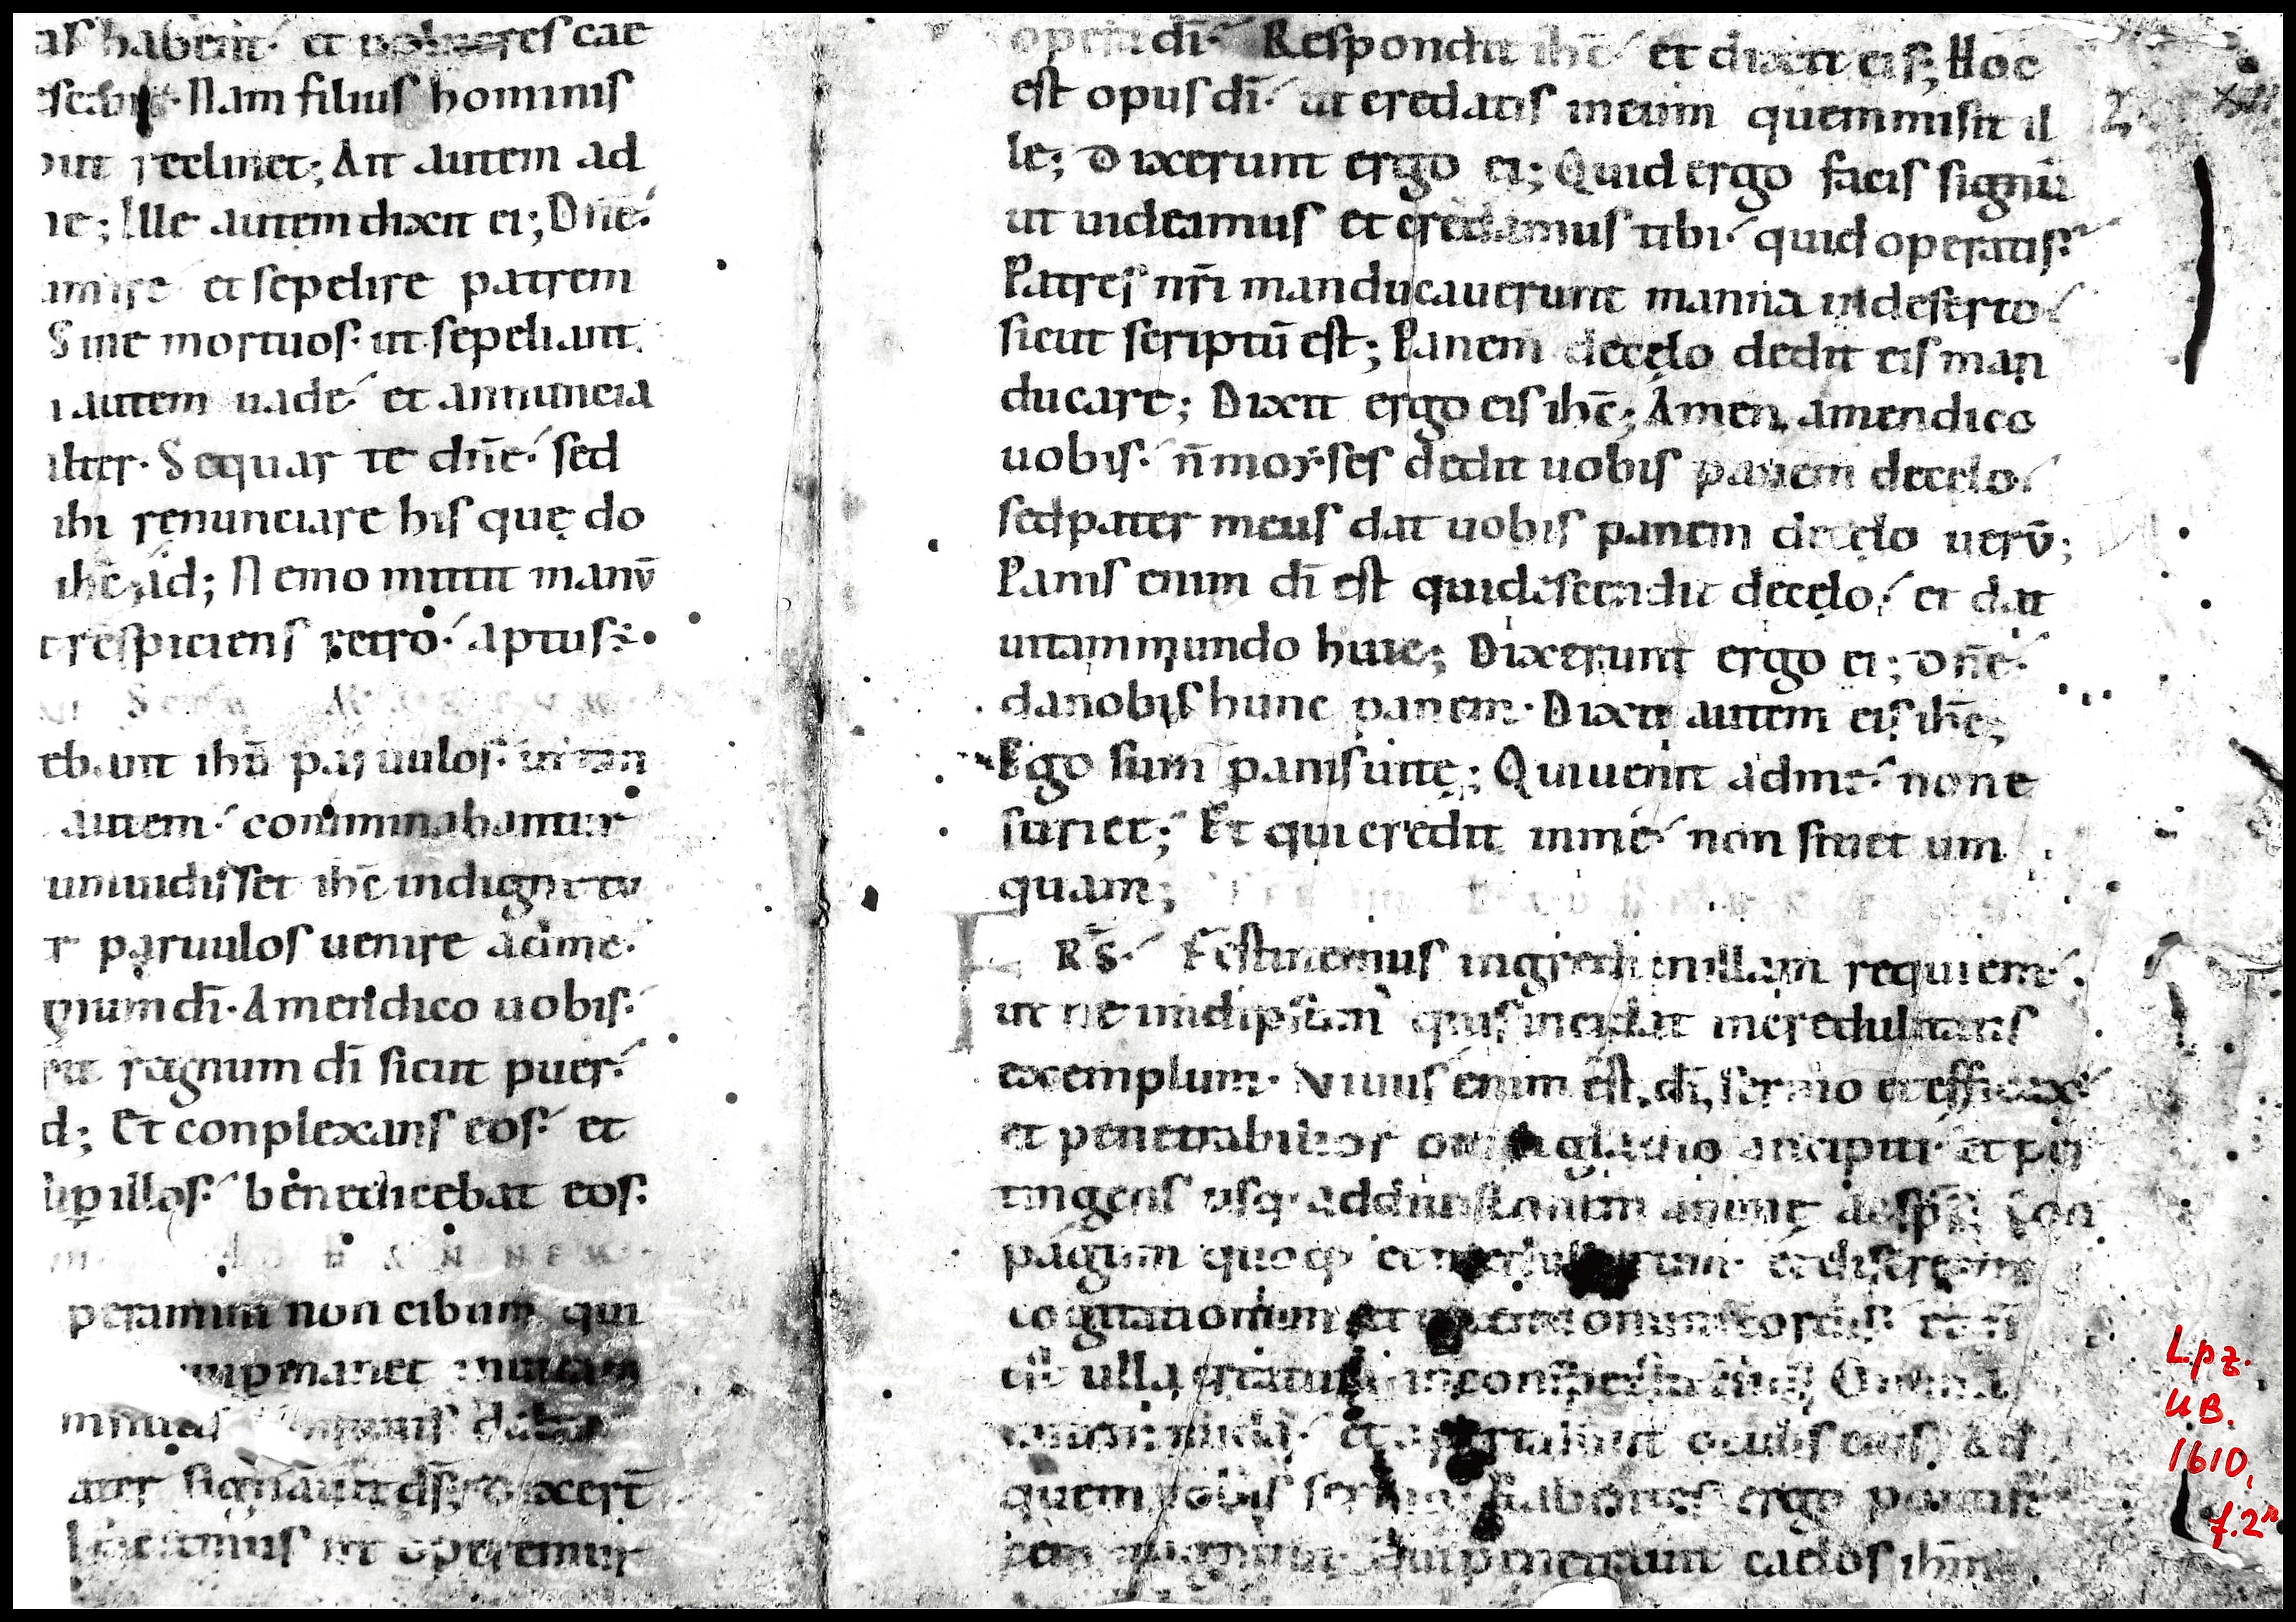 as habent· et volucres cae
scabit· Nam filius hominis
put reclinet; Ait autem ad
re; Ille autem dixit ei; Dn̄e·
imire et sepelire patrem
Sine mortuos· ut sepeliant
autem uade et annuncia
alter· Sequar te dn̄e· sed
ihi renunciare his quę do
ihc̄ ad; Nemo mittit manū
respiciens retro· aptus·
ebant ihū paruulos· ut tan
autem· comminabantur
um uidisset ihc̄ indigne tu
r paruulos uenire adme·
gnum dī· Amen dico uobis·
rit regnum dī sicut puer·
d; Et conplexans eos· et
sup illos· benedicebat eos·
peramini non cibum qui
manet
dabit
ater signauit ds̄; Dixert̄
faciemus ut operemur
operā dī· Respondit ihc̄ et dixit eis; Hoc
est opus dī· ut credatis ineum quemmisit il
le; Dixerunt ergo ei; Quid ergo facis signū
ut uideamus et credamus tibi· quid operatis·
Patres nr̄i manducauerunt manna indeserto
sicut scriptū est; Panem decęlo dedit eis man
ducare; Dixit ergo eis ihc̄; Amen amendico
uobis· n̄ moyses dedit uobis panem decęlo·
sedpater meus dat uobis panem decęlo uerū;
Panis enim dī est quidescendit decęlo· et dat
uitammundo huic; Dixerunt ergo ei; Dn̄e·
danobis hunc panem· Dixit autem eis ihc̄;
Ego sum panisuitę; Quiuenit adme· none
suriet; Et quicredit inme· non sitiet um
quam;
R̄S· Festinemus ingredi inillam requiem·
ut ne inidipsum quisincidat incredulitatis
exemplum· Viuus enim est dī sermo etefficax
et penetrabilior omni gladio ancipiti· et per
tingens usq· addiuisionem animę acsp̄s; con
pagum quoq· et medullarum· et discretor
cogitationum et intentionum cordis· et n̄
est ulla creatura inconspectu eius; Omnia
autem nuda· et aperta sunt oculis eius; Ad
quem nobis sermo; Habentes ergo pontifi
cem magnum· quipenetrauit caelos ihm̄
2
Lpz.
UB.
1610,
f.2r